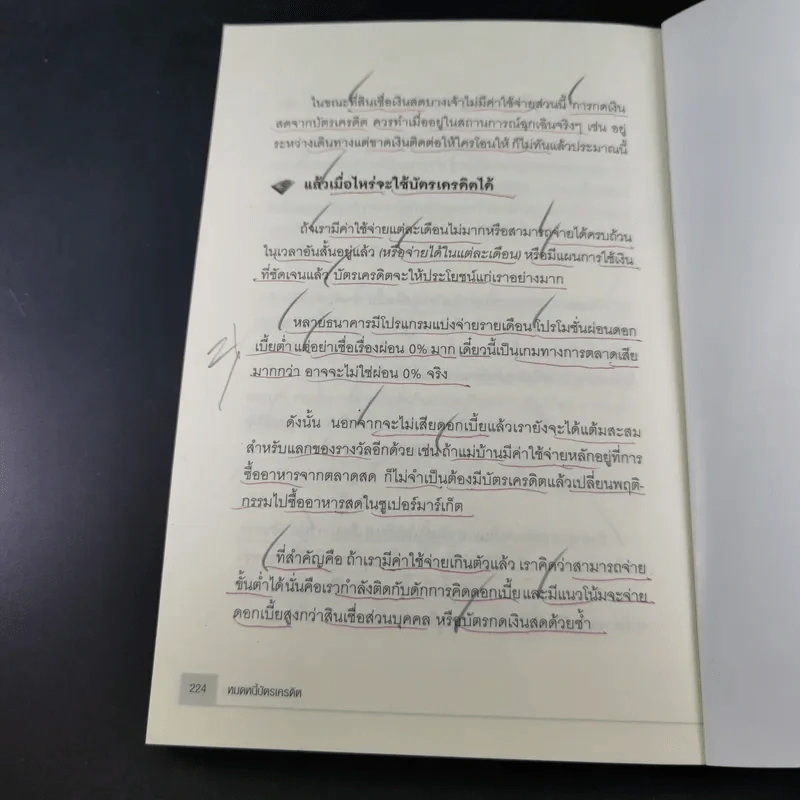 ในขณะที่สินเชื่อเงินสดบางเจ้าไม่มีค่าใช้จ่ายส่วนนี้ การกดเงิน
สดจากบัตรเครดิต ควรทำเมื่ออยู่ในสถานการณ์ฉุกเฉินจริงๆ เช่น อยู่
ระหว่างเดินทางแต่ขาดเงินติดต่อให้ใครโอนให้ ก็ไม่ทันแล้วประมาณนี้
แล้วเมื่อไหร่จะใช้บัตรเครดิตได้
ถ้าเรามีค่าใช้จ่ายแต่ละเดือนไม่มากหรือสามารถจ่ายได้ครบถ้วน
ในเวลาอันสั้นอยู่แล้ว (หรือจ่ายได้ในแต่ละเดือน) หรือมีแผนการใช้เงิน
ที่ชัดเจนแล้ว บัตรเครดิตจะให้ประโยชน์แก่เราอย่างมาก
หลายธนาคารมีโปรแกรมแบ่งจ่ายรายเดือน โปรโมชั่นผ่อนดอก
เบี้ยต่ำ แต่อย่าเชื่อเรื่องผ่อน 0% มาก เดี๋ยวนี้เป็นเกมทางการตลาดเสีย
มากกว่า อาจจะไม่ใช่ผ่อน 0% จริง
ดังนั้น นอกจากจะไม่เสียดอกเบี้ยแล้วเรายังจะได้แต้มสะสม
สำหรับแลกของรางวัลอีกด้วย เช่น ถ้าแม่บ้านมีค่าใช้จ่ายหลักอยู่ที่การ
ซื้ออาหารจากตลาดสด ก็ไม่จำเป็นต้องมีบัตรเครดิตแล้วเปลี่ยนพฤติ-
กรรมไปซื้ออาหารสดในซูเปอร์มาร์เก็ต
ที่สำคัญคือ ถ้าเรามีค่าใช้จ่ายเกินตัวแล้ว เราคิดว่าสามารถจ่าย
ขั้นต่ำได้นั่นคือเรากำลังติดกับดักการคิดดอกเบี้ย และมีแนวโน้มจะจ่าย
ดอกเบี้ยสูงกว่าสินเชื่อส่วนบุคคล หรือบัตรกดเงินสดด้วยซ้ำ
224 หมดหนี้บัตรเครดิต